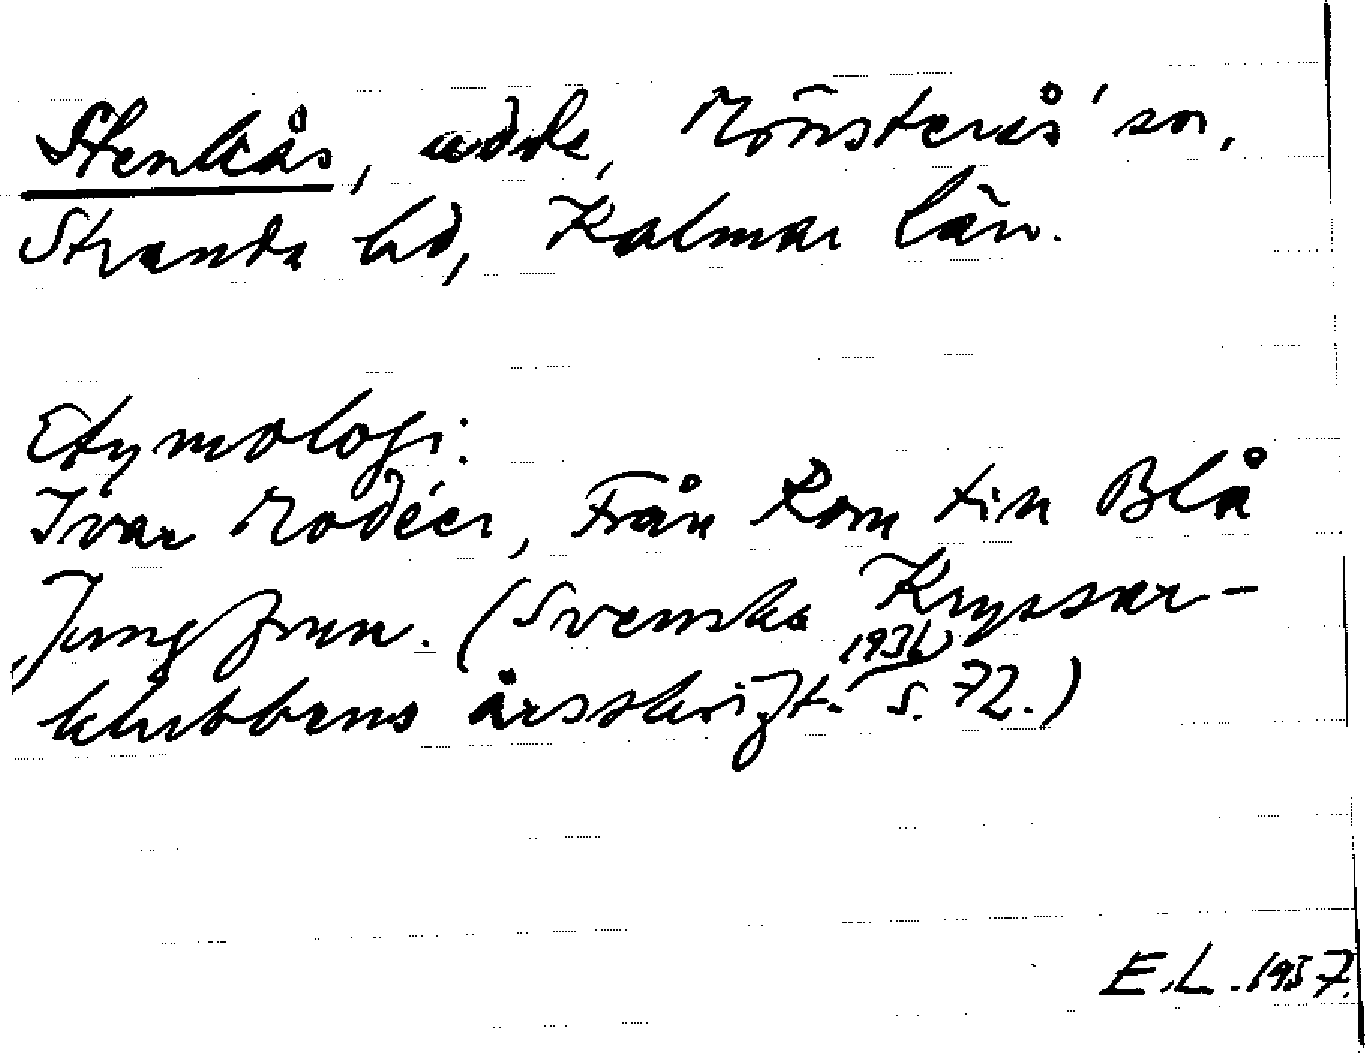 Stenkås, udde, Mönsterås sn,
Stranda hd, Kalmar län.
Etymologi:
Ivar Modéer, Från Rom till Blå
Jungfrun. (Svenska Kryssar-
klubbens årsskrift. 1936 s. 72.)
E.L. 1937.